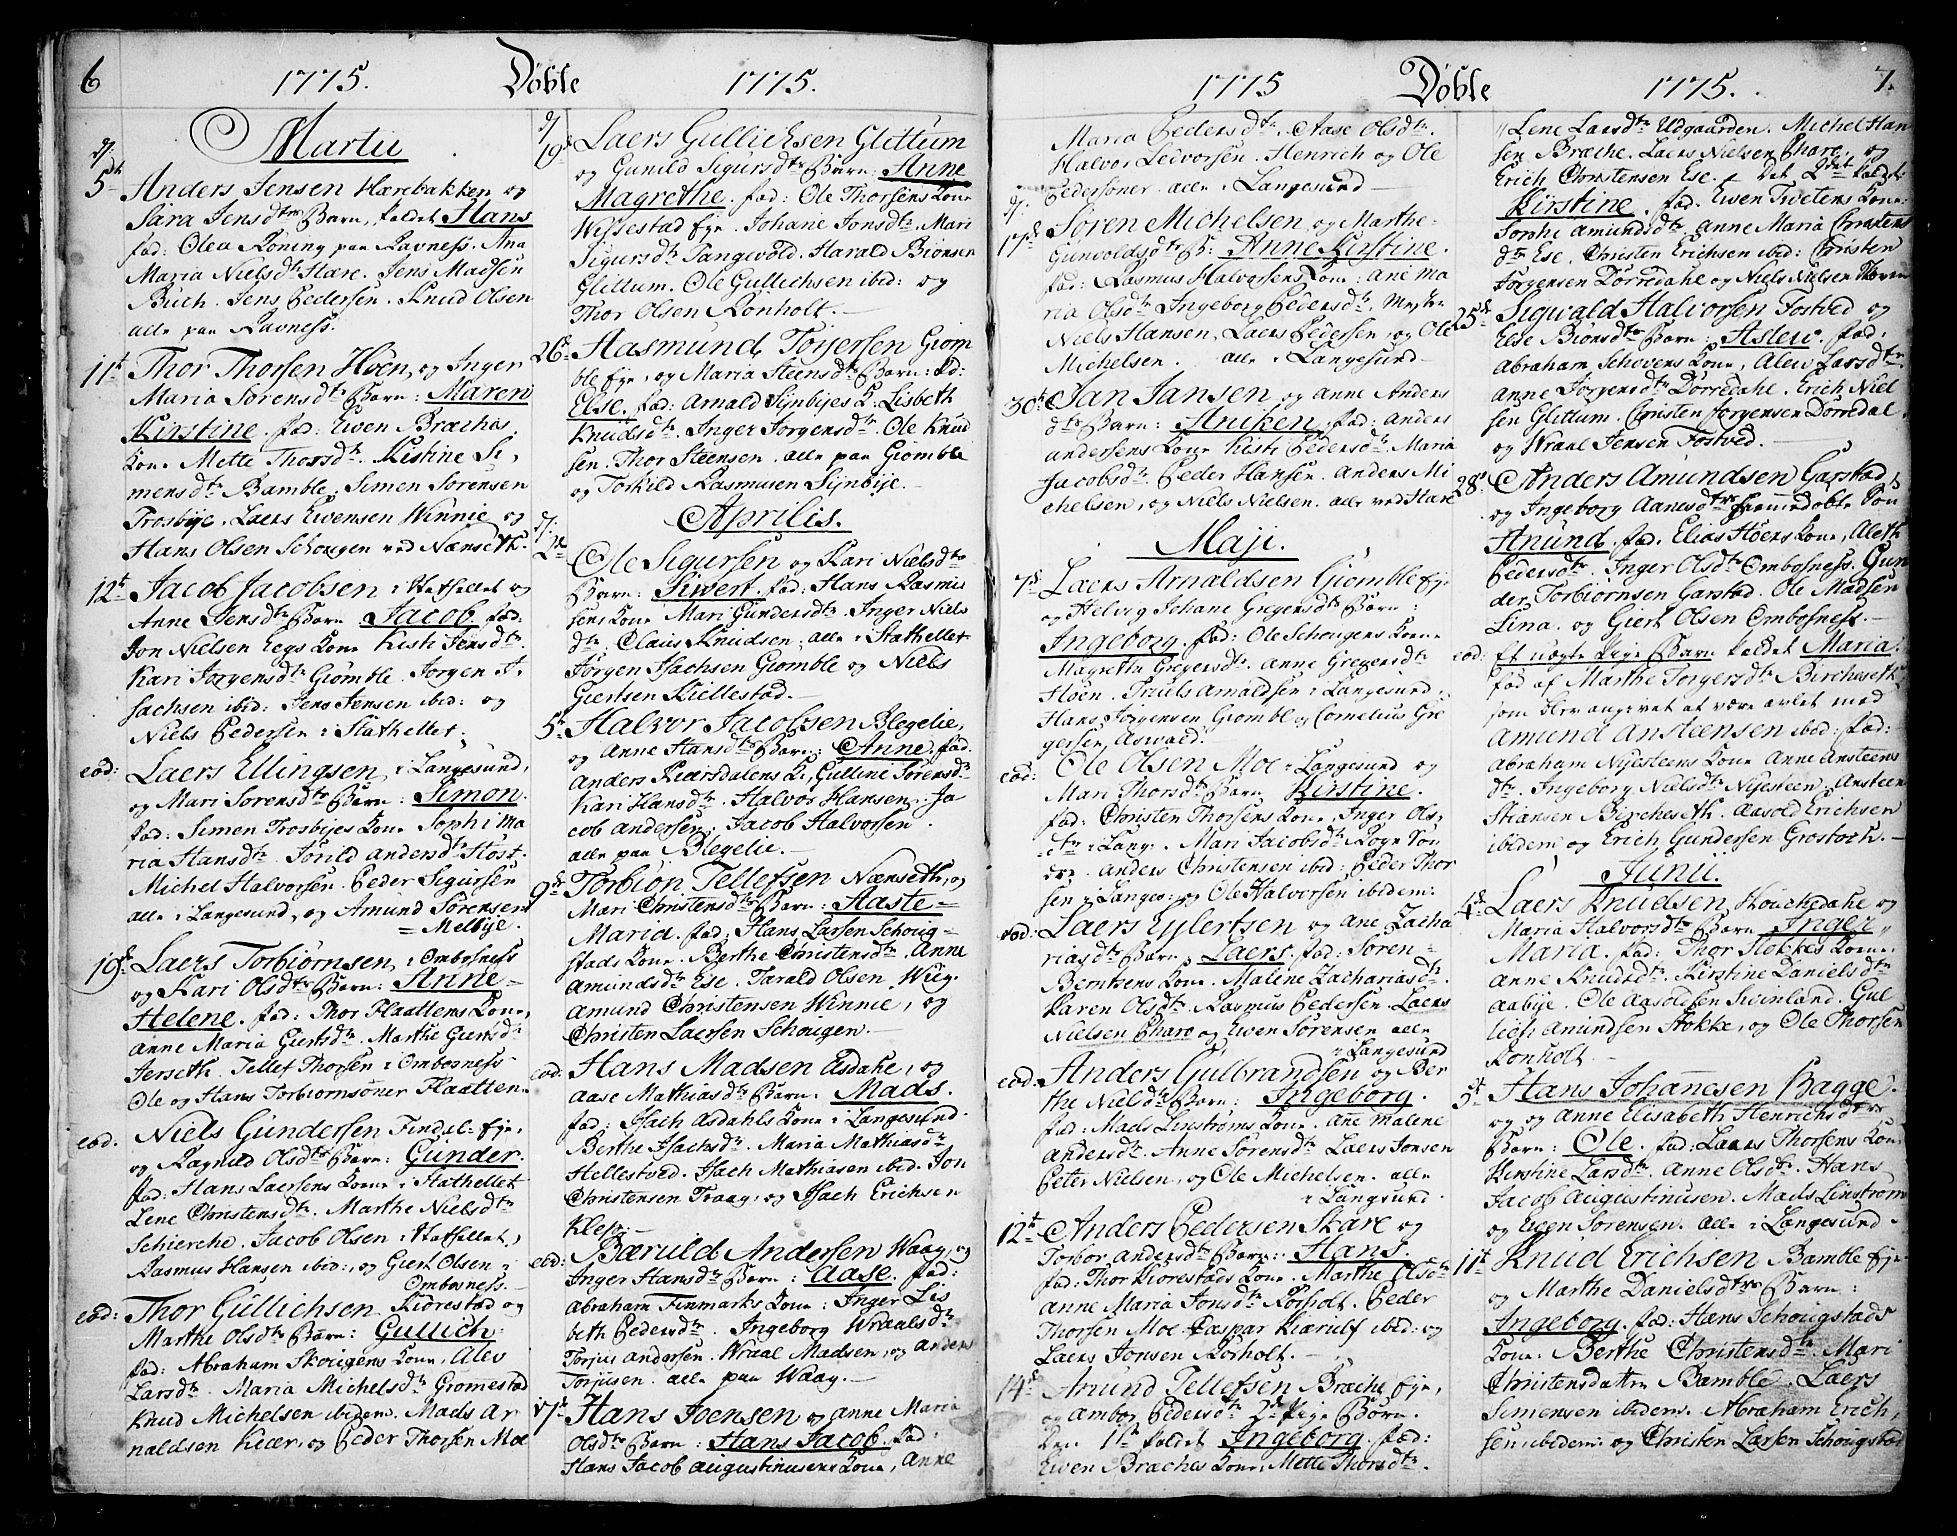 6
1775. Döble 1775.
Martii
d/ 5t Anders Jensen Harebakken og
Sara Jensdtrs Barn, kaldet Hans
fad: Olea Koning paa Ravness. Ana
Maria Nielsdtr Hare. Jens Madsen
Buch. Jens Pedersen. Knud Olsen
alle paa Ravness.
11t Thor Thorsen Höen, og Inger
Maria Sörensdtrs Barn: Maren
Kirstine. fad: Ewen Bræches
Kone Mette Thorsdtr. Kirstine Si,
mensdtr Bamble. Simen Sörensen
Trosbije. Laers Ewensen Winnie og
Hans Olsen Schougen ved Nænseth.
12t Jacob Jacobsen i Statheller og
Anne Jensdtr Barn Jacob. fad:
Jon Nielsen Eegs Kone Kisti Jensdtr.
Kari Jörgensdtr Giömble. Jörgen J.
sachsen ibid: Jens Jensen ibid: og
Niels Pedersen i Stathellet.
eod: Laers Ellingsen i Langesund,
og Mari Sörensdtrs Barn: Simon.
fad: Simen Trosbijes Kone Sophi ma
ria Hansdtr. Torild Andersdtr Höst.
Michel Halvorsen. Peder Sigursen
alle i Langesund, og Amund Sörensen
= Melbije.
19de Laers Torbiörnsen i Ombosness
og Kari Olsdtrs Barn: Anne =
Helene. fad: Thor Flaattens Kone,
Anne Maria Giertsdtr. Marthe Giertsdtr
Jerseth. Tellef Thorsen i Ombosness
Ole og Hans Torbiörnsöner Flaatten.
eod. Niels Gundersen Findal-Eje,
og Ragnild Olsdtrs Barn: Gunder.
fad: Hans Laersens Kone i Stathellet
Lene Christensdtr. Marthe Nielsdtr
Schierche. Jacob Olsen i Stathellet,
Rasmus Hansen ibid:, og Giert Olsen i
Ombosness.
eod: Thor Gullichsen Kiörestad og
Marthe Olsdtrs Barn: Gullich.
fad: Abraham Skougens Kone, Alev
Larsdtr. Maria Michelsdtr Gromestad
Knud Michelsen ibidem. Mads Ar
naldsen Kiær, og Peder Thorsen Moe
d/ 19de Laers Gullichsen Glittum
og Gunild Sigursdtrs Barn: Anne
Magrethe. fad: Ole Thorsens Kone
Wissestad Eje. Johane Jonsdtr. Mari
Sigursdtr Tangevold. Harald Biönsen
Glittum. Ole Gullichsen ibid: og
Thor Olsen Rönholt.
26t Aasmund Torjersen Giöm
ble Eje, og Maria Steensdtrs Barn: kld:
Else. fad: Arnald Sijnbijes K: Lisbeth
Knudsdtr. Inger Jörgensdtr. Ole Knud
sen. Thor Steensen. alle paa Giömble
og Torkild Rasmusen Sijnbije.
Aprilis.
d/: 2de Ole Sigursen og Kari Nielsdtrs
Barn: Siwert. fad: Hans Rasmu
sens Kone Mari Gundersdtr. Inger Niels
dtr. Claus Knudsen, alle i Stathellet
Jörgen Isachsen Giömble og Niels
Giertsen Kiellestad.
5t Halvor Jacobsen Blegelie,
og Anne Hansdtrs Barn: Anne. fad.
Anders Kiærsdalens K: Gulline Sörensdtr
Kari Hansdtr. Halvor Hansen. Ja
cob Andersen. Jacob Halvorsen
alle paa Blegelie.
9de Torbiön Tellefsen Nænseth, og
Mari Christensdtrs Barn: Aaste =
Maria. fad: Hans Larsen Schoug=
stads Kone. Berthe Christensdtr. Anne
Amundsdtr Ese. Tarald Olsen Wug.
Amund Christensen Winnie, og
Christen Laersen Schougen.
eod: Hans Madsen Asdahl, og
Aase Mathiasdtr Barn: Mads.
fad: Isach Asdahls Kone i Langesund.
Berthe Isachsdtr. Maria Mathiasdtr
Hellestved. Isach Mathiasen ibid. Jon
Christensen Traag, og Isach Erichsen
Klep.
eod: Bæruld Andersen Waag, og
Inger Hansdtr Barn: Aase. fad:
Abraham Finmarks Kone: Inger Lis
beth Pedersdtr. Ingeborg Wraalsdtr
Torjus Andersen. Wraal Madsen, og Anders
Torjusen. alle paa Waag.
17de Hans Joensen og Anne Maria
Olsdtr Barn: Hans Jacob. fad:
Hans Jacob Augustinusens Kone, Anne
1775 Döble 1775. 7.
Maria Pedersdtr. Aase Olsdtr.
Halvor Ledvorsen. Henrich og Ole
Pedersöner alle i Langesund
d/. 17de Sören Michelsen og Marthe
Gunvoldsdtrs B: Anne Kirstine.
fad: Rasmus Halvorsens Kone: Ane Ma
ria Olsdtr. Ingeborg Pedersdtr, Mester
Niels Hansen, Laers Pedersen, og Ole
Michelsen. alle i Langesund
30t Jan Jansen og Anne Anders
dtrs Barn: Aniken. fad: Anders
Andersens Kone Kisti Pedersdtr. Maria
Jacobsdtr. Peder Hansen. Anders Mi
chelsen, og Niels Nielsen. alle ved Hare
Maji.
7de Laers Arnaldsen Giömble Eje
og Helvig Johane Gregersdtr Barn:
Ingeborg. fad: Ole Schougens Kone
Magrethe Gregersdtr. Anne Gregersdtr
Höen. Truels Arnaldsen i Langesund.
Hans Jörgensen Giömbl og Cornelius Gre
gersen Aswald.
eod: Ole Olsen Moe i Langesund og
Mari Thorsdtr Barn Kirstine.
fad: Christen Thorsens Kone, Inger Ols,
dtr i Lang: Mari Jacobsdtr Rogn Sön
dre. Anders Christensen ibid: Peder Thor
sen i Langes: og Ole Halvorsen ibidem:
eod: Laers Eylertsen og Ane Zacha
riasdtr Barn Laers. fad: Sören
Berntsens Kone. Maline Zachariasdtr.
Karen Olsdtr. Rasmus Pedersen. Laers
Nielsen Charo og Ewen Sörensen alle
i Langesund
eod: Anders Gulbrandsen og Ber
the Nielsdtr Barn: Ingeborg.
fad: Mads Linströms Kone. Ane Malene
Andersdtr. Anne Sörensdtr. Laers Jonsen
Peter Nielsen, og Ole Michelsen. alle
i Langsund.
12te Anders Pedersen Skare og
Torbor Andersdtr Barn: Hans.
fad: Thor Kiörestads Kone. Marthe Olsdtr
Anne Maria Jonsdtr Rörholt. Peder
Thorsen Moe. Caspar Kiærulf ibid: og
Laers Jonsen Rörholt.
14de Amund Tellefsen Bræche Eje,
og Ambor Pedersdtr 2de Pige Börn.
Den 1te kaldet Ingeborg. fad:
Ewen Bræches Kone, Mette Thorsdtr.
Lene Larsdtr Udgaarden. Michel Han
sen Bræche. Laers Nielsen Charo. og
Erich Christensen Ese. Det 2det kaldet
Kirstine. fad. Ewen Twetens Kone
Sophi Amundsdtr. Anne Maria Christens
dtr Ese. Christen Erichsen ibid: Christen
Jörgensen Dörredahl og Niels Nielsen
25de Sigwald Halvorsen Fostved og
Else Biönsdtr Barn: Aslew. fad:
Abraham Schovens Kone, Alew Larsdtr
Anne Jörgensdtr Dörredahl. Erich Niel
sen Glittum. Christen Jörgensen Dörredal.
og Wraal Jensen Fostved.
28de Anders Amundsen Garstad,
og Ingeborg Aanesdtrs hiemmedöbte Sön
Anund. fad. Elias Höens Kone, Aleth
Pedersdtr. Inger Olsdtr Ombosness. Gun
der Torbiörnsen Garstad. Ole Madsen
Lina. og Giert Olsen Ombosness.
eod: Et uægte Pige Barn kaldet Maria.
fad af Marthe Torgersdtr Bircheseth
som blev angivet at være avlet med
Amund Ansteensen ibid: fad:
Abraham Nijsteens Kone Anne Ansteens
dtr. Ingeborg Nielsdtr Nijsteen. Ansteen
Stiansen Bircheseth. Aasold Erichsen
ibidem og Erich Gundersen Grostoch.
Junii.
4de Laers Knudsen Houchedahl og
Maria Halvorsdtr Barn Inger
Maria. fad: Thor Stokkes Kone.
Anne Knudsdtr. Kirstine Danielsdtr
Aabije. Ole Aasoldsen Suinland. Gul
lich Amundsen Stokke, og Ole Thorsen
Rönholt
5t Hans Johannesen Bagge.
og Anne Elisabeth Henrichsdtrs
Barn: Ole. fad: Laers Thorsens Kone
Kirstine Larsdtr. Anne Olsdtr. Hans
Jacob Augustinusen. Mads Linström
og Ewen Sörensen. alle i Langesund.
11t Knud Erichsen Bamble Eje
og Marthe Danielsdtrs Barn:
Ingeborg. fad: Hans Schougstads
Kone. Berthe Christensdtr. Mari
Christensdatter Bamble. Laers
Simensen ibidem. Abraham Erich,
sen ibidem: og Christen Larsen Schougstad